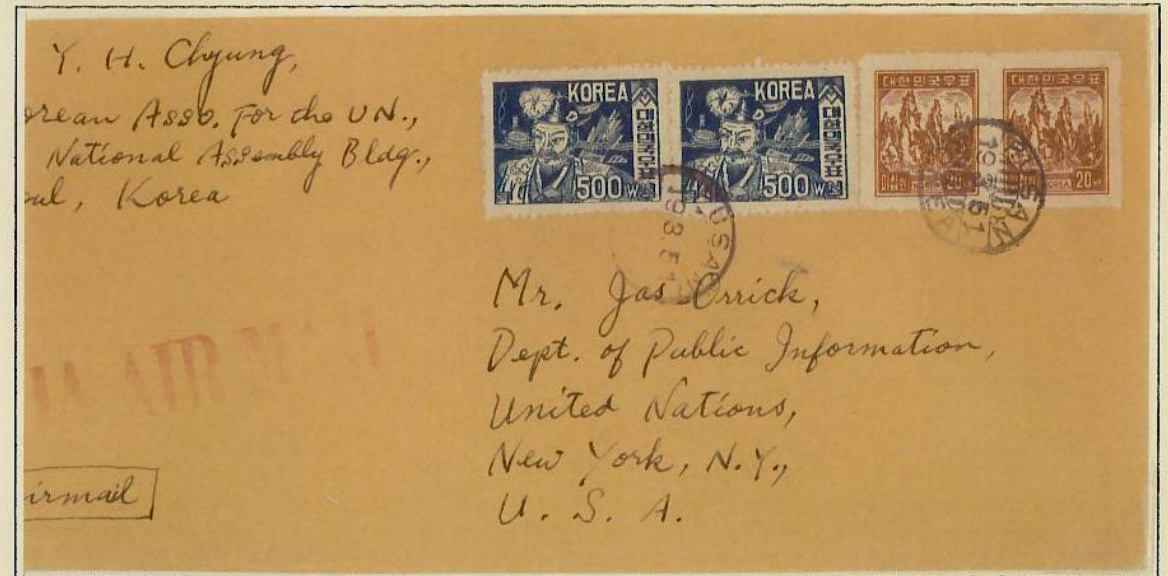 Y. H. Chyung,
orean Asso. For the UN.,
National Assembly Bldg.,
ul, Korea
KOREA
대한민국우표
500 W 원
KOREA
대한민국우표
500 W 원
대한민국우표
20
대한민국우표
KOREA 20
PUSAN
19.3.51
PUSAN
19.3.51
KOREA
Mr. Jas Orrick,
Dept. of Public Information,
United Nations,
New York, N.Y.,
U. S. A.
IA AIR MAIL
irmail